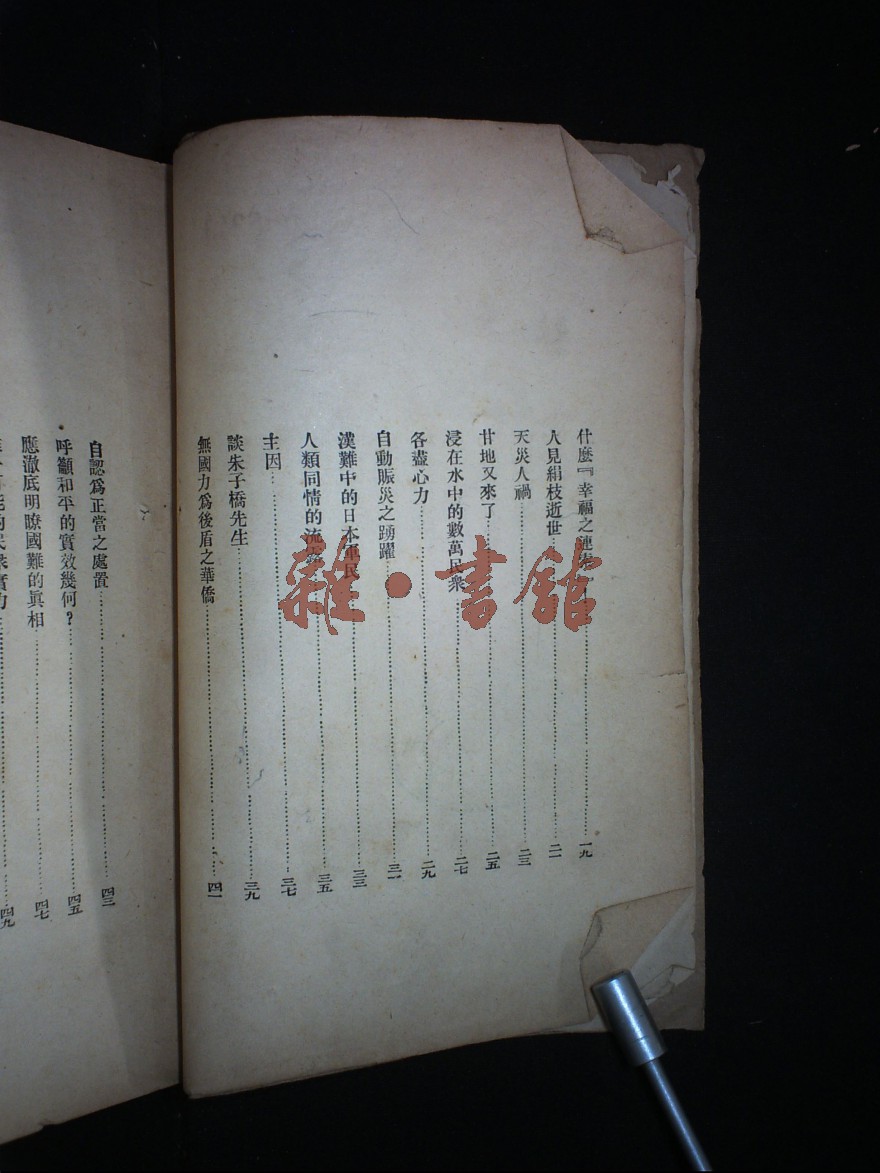 什麼『幸福之連索……一九
人見絹枝近世……二一
天災人禍……二三
甘地又來了……二五
浸在水中的數萬民衆……二七
各盡心力……二九
自動賑災之踴躍……三一
漢難中的日本軍民……三三
人類同情的流露……三五
主因……三七
談朱子橋先生……三九
無國力爲後盾之華僑……四一
自認爲正當之處置……四三
呼籲和平的實效幾何？……四五
應澈底明瞭國難的眞相……四七
四九
雜·書館